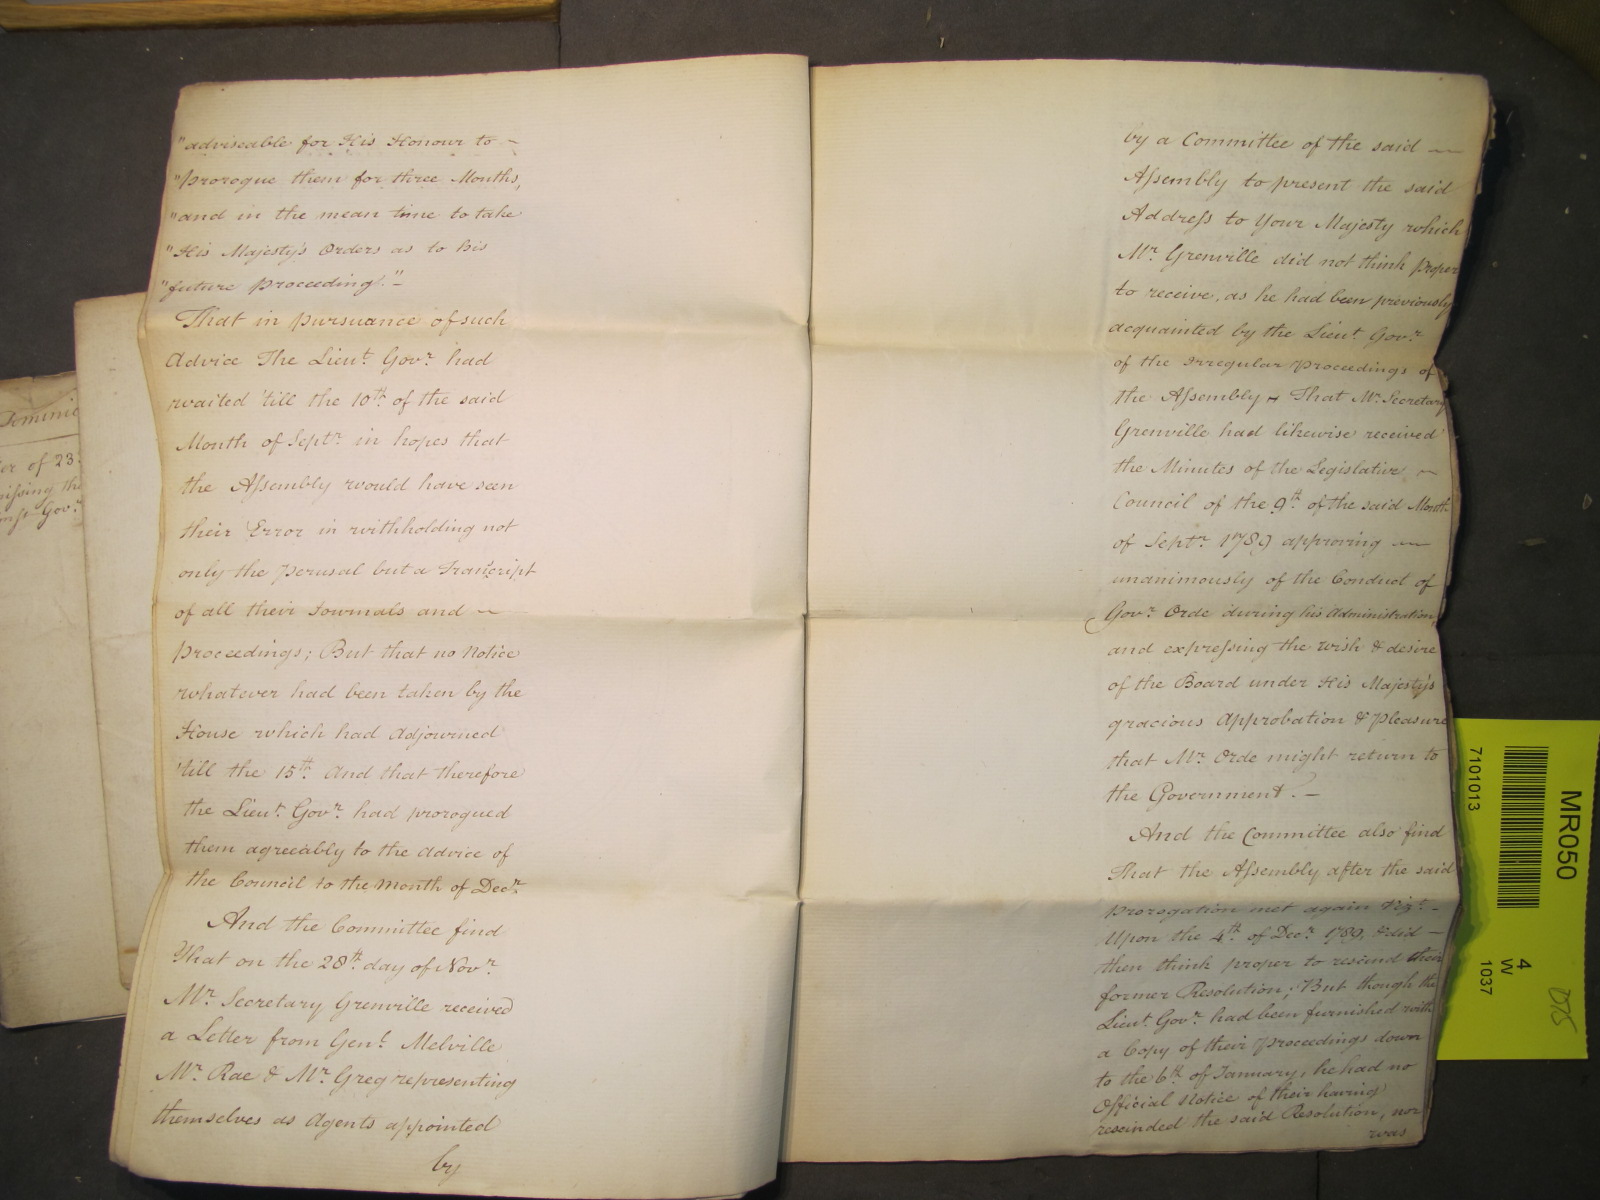 "adviseable for His Honour to —
"prorogue them for three Months,
"and in the mean time to take
"His Majesty's Orders as to his
"future Proceeding." —
That in pursuance of such
Advice The Lieut. Govr. had
waited 'till the 10th. of the said
Month of Septr. in hopes that
the Assembly would have seen
their Error in withholding not
only the perusal but a Transcript
of all their Journals and —
Proceedings; But that no Notice
whatever had been taken by the
House which had Adjourned
'till the 15th. And that therefore
the Lieut. Govr. had prorogued
them agreeably to the advice of
the Council to the Month of Decr.
And the Committee find
That on the 28th. day of Novr.
Mr. Secretary Grenville received
a Letter from Genl. Melville
Mr. Rae & Mr. Greg representing
themselves as Agents appointed
by
by a Committee of the said —
Assembly to present the said
Address to Your Majesty which
Mr. Grenville did not think proper
to receive, as he had been previously
acquainted by the Lieut. Govr.
of the Irregular Proceedings of
the Assembly — That Mr. Secretary
Grenville had likewise received
the Minutes of the Legislative —
Council of the 9th. of the said Month
of Septr. 1789 approving —
unanimously of the Conduct of
Govr. Orde during his Administration,
and expressing the wish & desire
of the Board under His Majesty's
gracious Approbation & Pleasure
that Mr. Orde might return to
the Government. —
And the Committee also find
That the Assembly after the said
Prorogation met again Vizt. —
Upon the 4th. of Decr. 1789, & did —
then think proper to rescind their
former Resolution; But though the
Lieut. Govr. had been furnished with
a Copy of their Proceedings down
to the 6th. of January, he had no
Official Notice of their having
rescinded the said Resolution, nor
was
Dominic
er of 23
issing the
Govr.
MR050
7101013
4
W
1037